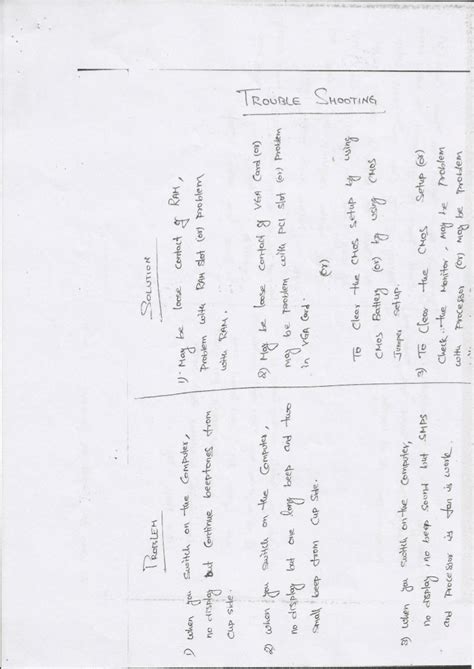 TROUBLE SHOOTING
PROBLEM
1) When you switch on the Computer,
no display but Continue beeptones from
Cup side.
2) When you switch on the Computer,
no display but one long beep and two
small beep from Cup side.
3) When you switch on the Computer,
no display, no beep sound but SMPS
and Processor is fan is work.
SOLUTION
1) May be loose contact of RAM,
Problem with RAM slot (or) problem
with RAM.
2) May be loose contact of VGA Card (or)
may be problem with PCI slot (or) problem
in VGA Card.
(or)
To Clear the CMOS setup by using
CMOS Battery (or) by using CMOS
Jumper setup.
3) To Clear the CMOS Setup (or)
Check the Monitor, may be problem
with Processor (or) may be Problem